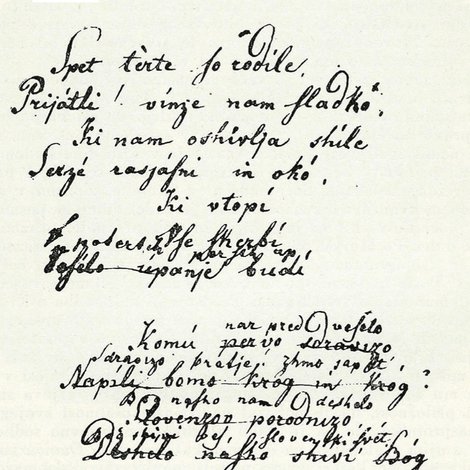 Spet tèrte so rôdile,
Prijátli! vinze nam sladkó,
Ki nam oshivlja shile
Serzé rasjásni in okó,
Ki vtopí
Vse skerbí
persih
úpanje budí
Komú nar pred veselo
pervo sdravizo
Sdravizo bratje! zhmo sapét',
Napíli bomo krog in króg?
Bog nasho nam deshelo
Slovenzov porodnizo,
Bog shivi vès slovenski svét,
Deshelo nasho shivi Bóg